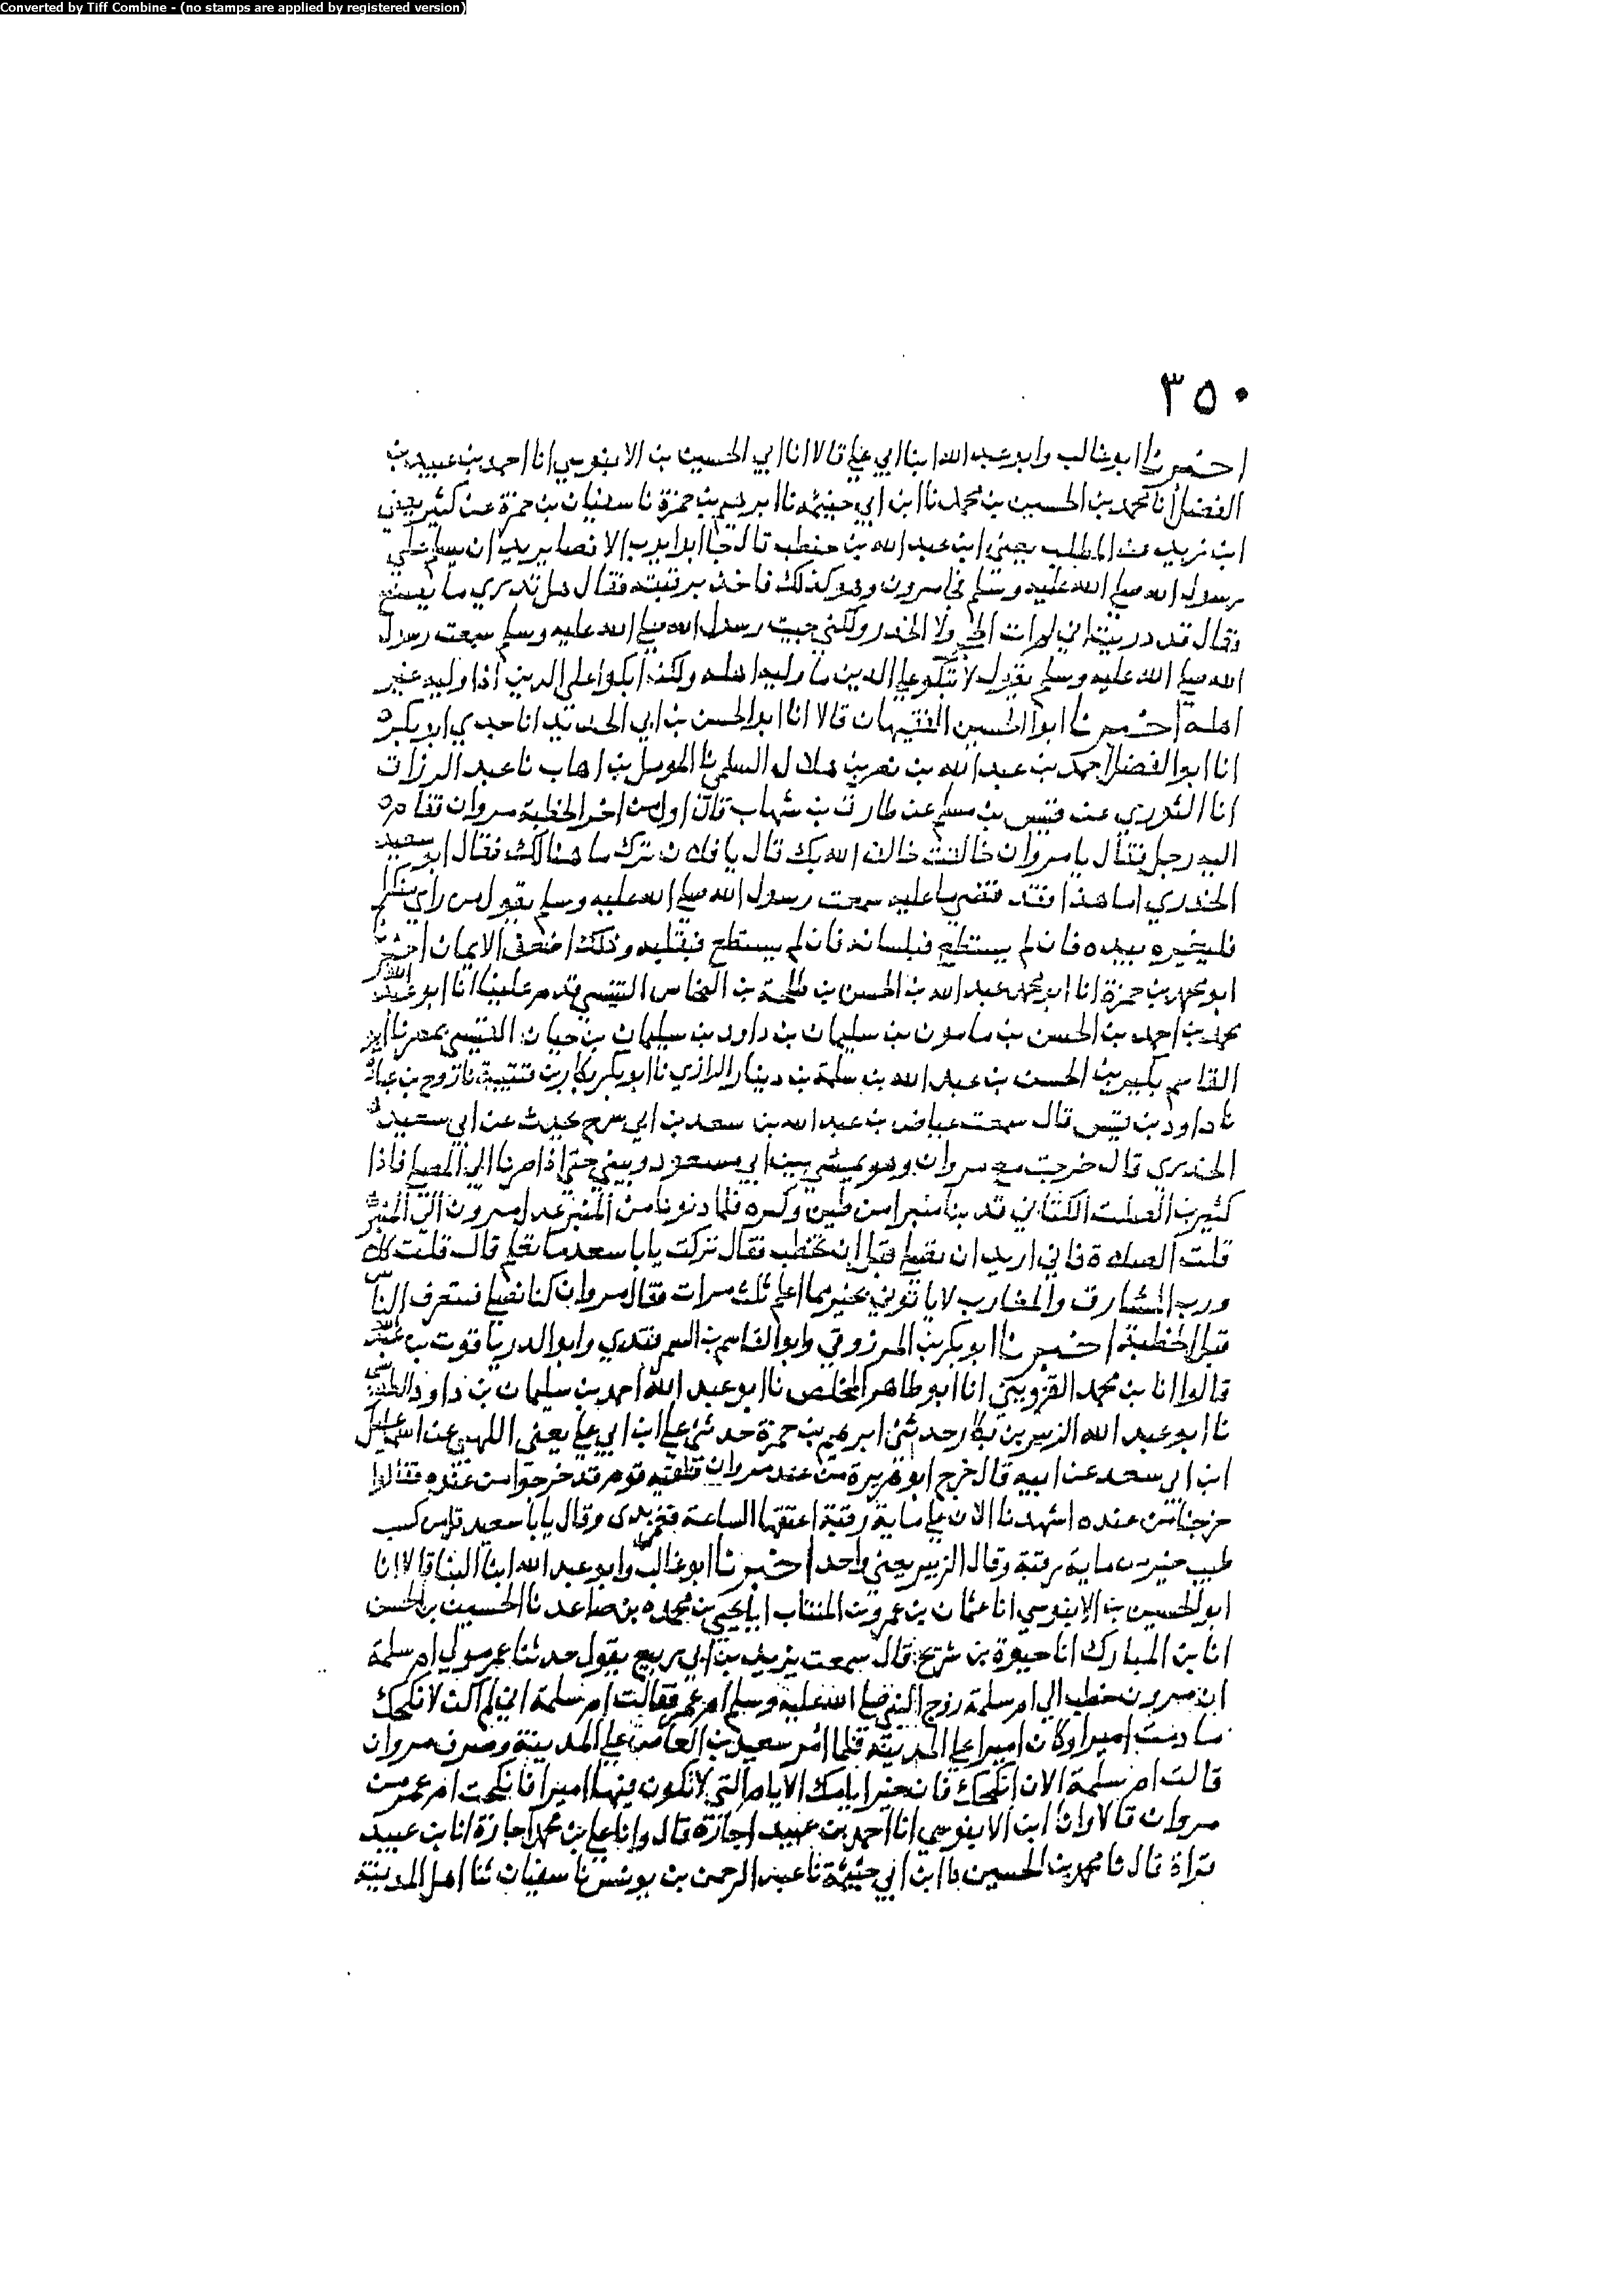 Converted by Tiff Combine - (no stamps are applied by registered version)
٣٥٠
اخبرنا ابو غالب وابو عبد الله ابنا ابي علي قالا انا ابي الحسين بن الابنوسي انا احمد بن عبيد بن
الفضل انا محمد بن الحسين بن محمد نا ابن ابي خيثمه نا ابرهيم بن حمزة نا سفيان بن حمزة عن كثير يعني
ابن زيد عن المطلب يعني ابن عبد الله بن حنطب قال جا ابو ايوب الانصا يريد ان يسلم علي
رسول الله صلى الله عليه وسلم فجا مرون وهو كذلك فاخذ برقبته فقال هل تدري ما يصنع
فقال قد دريت اني لم ات الحجر ولا الخدر ولكني جيت رسول الله صلى الله عليه وسلم سمعت رسول
الله صلى الله عليه وسلم يقول لا تبكو علي الدين ما وليه اهله ولكن ابكوا علي الدين اذا وليه غير
اهله اخبرنا ابوا الحسين الفقيهان قالا انا ابو الحسن بن ابي الحديد انا جدي ابو بكر
انا ابو الفضل احمد بن عبد الله بن نصر بن هلال السلمي نا المومل بن اهاب نا عبد الرزاق
انا الثوري عن قيس بن مسلم عن طارق بن شهاب قال اول من اخر الخطبة مروان فقام
اليه رجل فقال يا مروان خالفت خالف الله بك قال يا فلان ترك ما هنالك فقال ابو سعيد
الخدري اما هذا فقد قضي ما عليه سمعت رسول الله صلى الله عليه وسلم يقول من راي منكرا
فليغيره بيده فان لم يستطع فبلسانه فان لم يستطع فبقلبه وذلك اضعف الايمان اخبرنا
ابو محمد بن حمزة انا ابو محمد عبد الله بن الحسن بن طلحة بن النخاس التنيسي قدم علينا انا ابو عبد الله
محمد بن احمد بن الحسن بن مامون بن سليمان بن داود بن سليمان بن حيان التنيسي بمصر نا ابو
القاسم بكير بن الحسن بن عبد الله بن سلمة بن دينار الرازي نا ابو بكر بكار بن قتيبة نا روح بن عبادة
نا داود بن قيس قال سمعت عياض بن عبد الله بن سعد بن ابي سرح يحدث عن ابي سعيد
الخدري قال خرجت مع مروان وهو يمشي بين ابي مسعود وبيني حتي اذا صرنا الي المصلي فاذا
كثير بن الصلت الكناني قد بنا منبرا من طين وكسره فلما دنونا من المنبر عدل مرون الي المنبر
قلت الصلاة فاني اريد ان نصلي قبل ان تخطب فقال تركت يابا سعد ما تعلم قال قلت كلا
ورب المشارق والمغارب لا ياتوني بخير مما اعلم ثلث مرات فقال مروان كنا نصلي فتتفرق الناس
قبل الخطبة اخبرنا ابو بكر بن المرزوقي وابو القاسم بن السمرقندي وابو الدر ياقوت بن عبد الله
قالوا انا بن محمد القزويني انا ابو طاهر المخلص نا ابو عبد الله احمد بن سليمان بن داود الطوسي
نا ابو عبد الله الزبير بن بكار حدثني ابرهيم بن حمزة حدثني علي ابن ابي علي يعني اللهبي عن اسماعيل
ابن ابي سعد عن ابيه قال خرج ابو هريرة من عند مروان فلقيه قوم قد خرجوا من عنده فقالوا
خرجنا من عنده اشهدنا الان علي ماية رقبة اعتقها الساعة فغمز يدي وقال يابا سعيد قل من كسب
طيب خير من ماية رقبة وقال الزبير يعني واحد اخبرنا ابو غالب وابو عبد الله ابنا البنا قالا انا
ابو الحسين بن الابنوسي انا عثمان بن عمرو بن المنتاب ابا يحيي بن محمد بن صاعد نا الحسين بن الحسن
انا بن المبارك انا حيوة بن شريح قال سمعت يزيد بن ابي ربيع يقول حدثنا عمر مولي ام سلمة
ان مرون خطب الي ام سلمة زوج النبي صلى الله عليه وسلم ام عمر فقالت ام سلمة اني لم اكن لانكحك
ما دمت اميرا وكان اميرا علي المدينة فلما امر سعيد بن العاص علي المدينة وصرف مروان
قالت ام سلمة الان انكحك فان خير ايامك الايام التي لا تكون فيها اميرا فانكحت ام عمر من
مروان قالا وانا ابن الابنوسي انا احمد بن عبيد اجازة قال وانا علي بن محمد اجازة انا بن عبيد
قراة قال نا محمد بن الحسين نا ابن ابي خيثمة نا عبد الرحمن بن يونس نا سفيان ثنا اهل المدينة